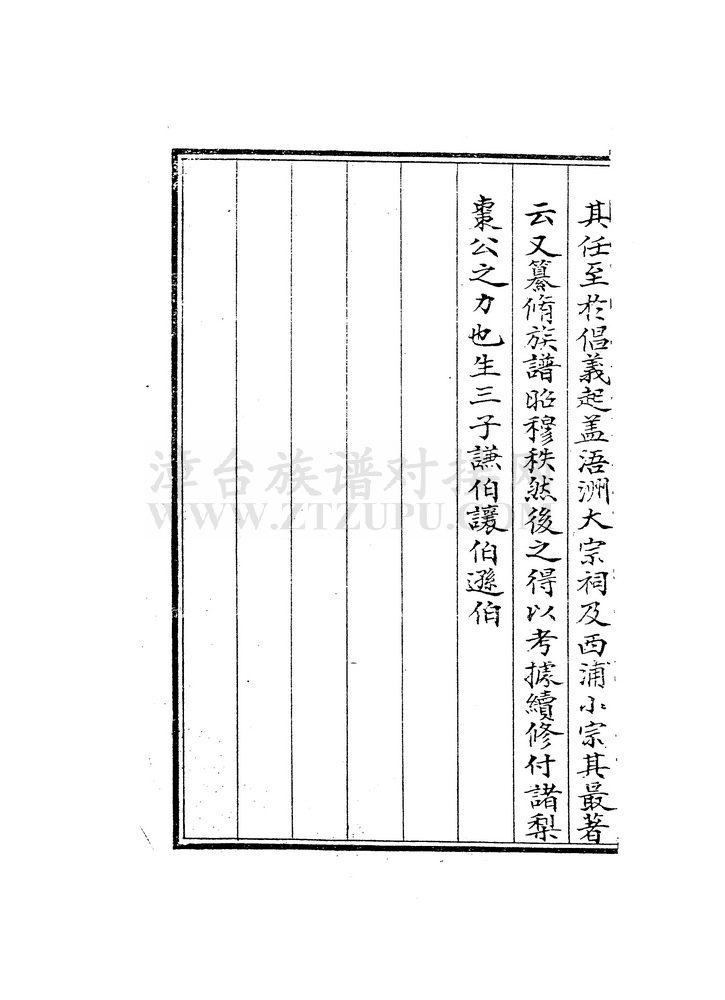 其任至於倡義起盖浯洲大宗祠及西浦小宗其最著
云又纂脩族譜昭穆秩然後之得以考據續修付諸梨
棗公之力也生三子謙伯讓伯遜伯
漳台族谱对接网
WWW.ZTZUPU.COM